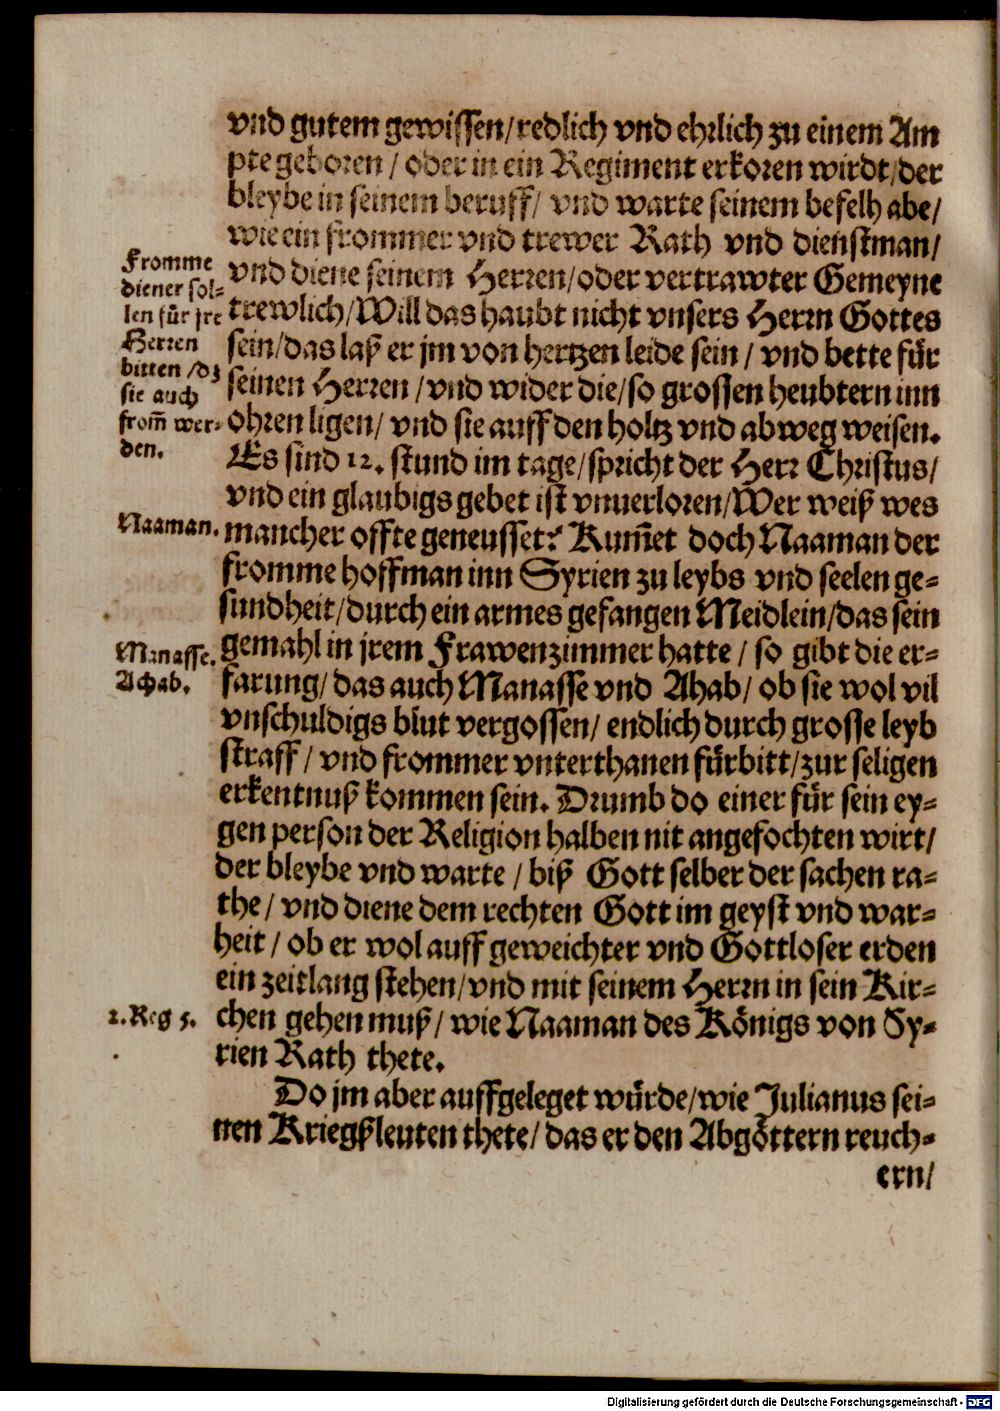 vnd gutem gewissen/redlich vnd ehrlich zu einem Am
pte geboren / oder in ein Regiment erkoren wirdt/der
bleybe in seinem beruff/ vnd warte seinem befelh abe/
wie ein frommer vnd trewer Rath vnd dienstman/
vnd diene seinem Herren/oder vertrawter Gemeyne
trewlich/Will das haubt nicht vnsers Herrn Gottes
sein/das laß er jm von hertzen leide sein / vnd bette für
seinen Herren /vnd wider die/so grossen heubtern inn
ohren ligen/ vnd sie auff den holtz vnd abweg weisen.
Es sind 12. stund im tage/spricht der Herr Christus/
vnd ein glaubigs gebet ist vnuerloren/Wer weiß wes
mancher offte geneusset? Kum̃et doch Naaman der
fromme hoffman inn Syrien zu leybs vnd seelen ge=
sundheit/durch ein armes gefangen Meidlein/das sein
gemahl in jrem Frawenzimmer hatte / so gibt die er=
farung/ das auch Manasse vnd Ahab/ ob sie wol vil
vnschuldigs blut vergossen/ endlich durch grosse leyb
straff / vnd frommer vnterthanen fürbitt/zur seligen
erkentnuß kommen sein. Drumb do einer für sein ey=
gen person der Religion halben nit angefochten wirt/
der bleybe vnd warte / biß Gott selber der sachen ra=
the / vnd diene dem rechten Gott im geyst vnd war=
heit / ob er wol auff geweichter vnd Gottloser erden
ein zeitlang stehen/vnd mit seinem Herrn in sein Kir=
chen gehen muß/ wie Naaman des Königs von Sy=
rien Rath thete.
Do jm aber auffgeleget würde/wie Julianus sei=
nen Kriegßleuten thete/ das er den Abgöttern reuch=
ern/
Fromme
diener sol=
len für jre
Herren
bitten /dz
sie auch
from̃ wer=
den.
Naaman.
Manasse.
Achab.
2. Reg 5.
Digitalisierung gefördert durch die Deutsche Forschungsgemeinschaft - DFG